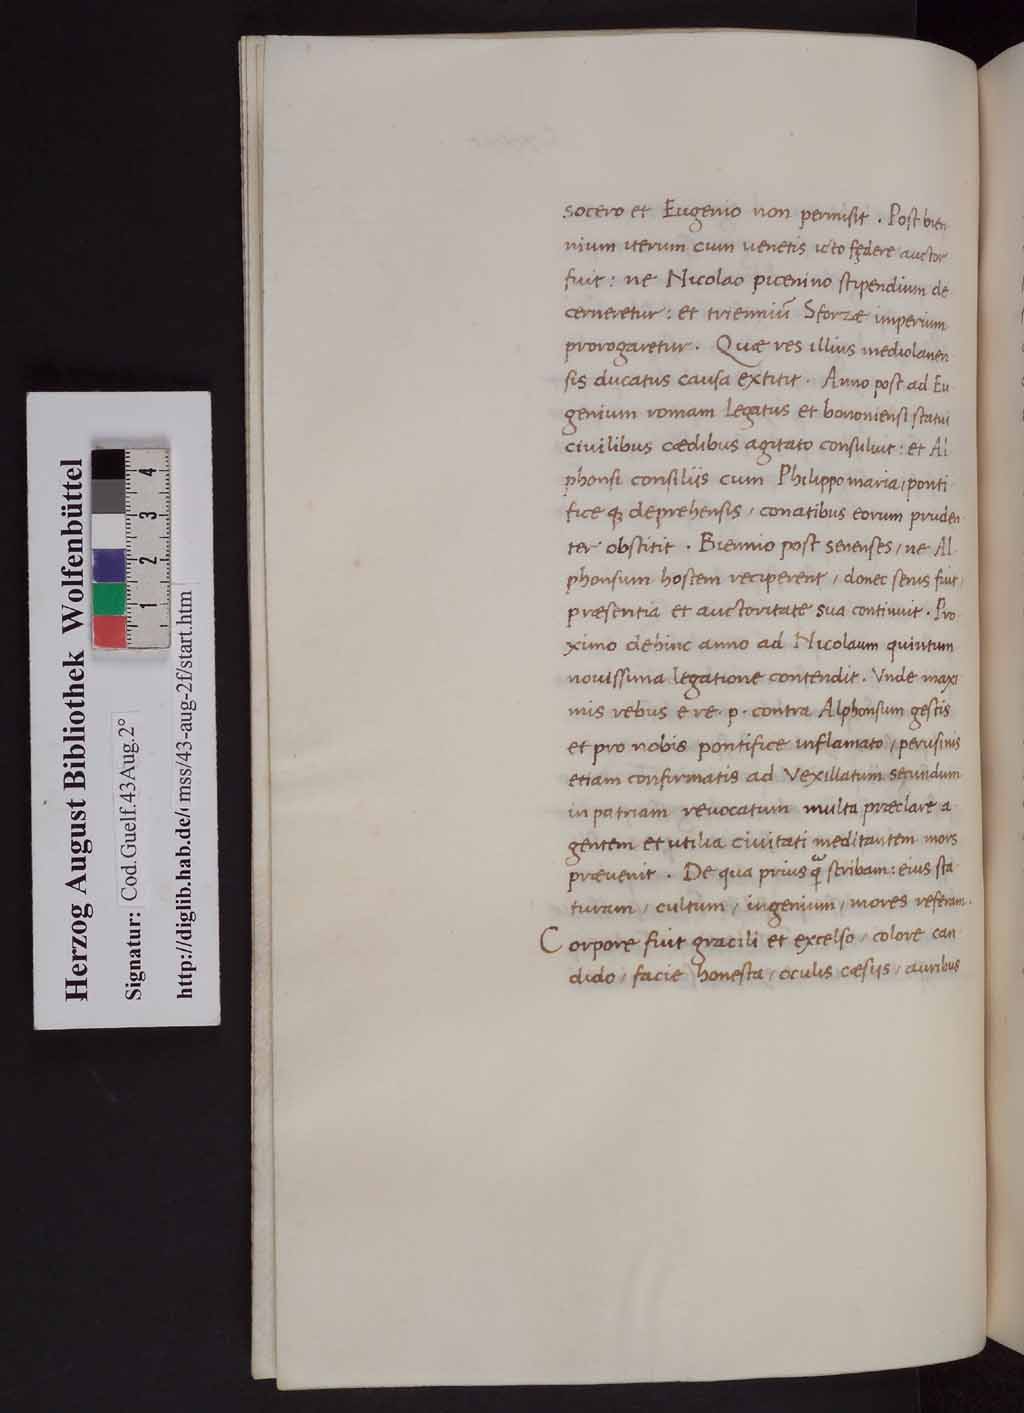 Herzog August Bibliothek Wolfenbüttel
Signatur: Cod.Guelf.43Aug.2°
http://diglib.hab.de/mss/43-aug-2f/start.htm
1 2 3 4
socero et Eugenio non permisit . Post bien
nium iterum cum uenetis icto fędere auctor
fuit : ne Nicolao picenino stipendium de
cerneretur : et trienniũ Sforzæ imperium
prorogaretur . Quæ res illius mediolanen
sis ducatus causa extitit . Anno post ad Eu
genium romam legatus et bononiensi statui
ciuilibus cædibus agitato consuluit : et Al
phonsi consilijs cum Philippo maria / ponti
fice q; deprehensis / conatibus eorum pruden
ter obstitit . Biennio post senenses / ne Al
phonsum hostem reciperent / donec senis fuit /
præsentia et auctoritate sua continuit . Pro
ximo dehinc anno ad Nicolaum quintum
nouissima legatione contendit . Vnde maxi
mis rebus e re . p . contra Alphonsum gestis
et pro nobis pontifice inflamato / perusinis
etiam confirmatis ad Vexillatum secundum
in patriam reuocatum multa præclare a
gentem et utilia ciuitati meditantem mors
præuenit . De qua prius q̃ scribam : eius sta
turam / cultum / ingenium / mores referam .
Corpore fuit gracili et excelso / colore can
dido / facie honesta / oculis cæsijs / auribus